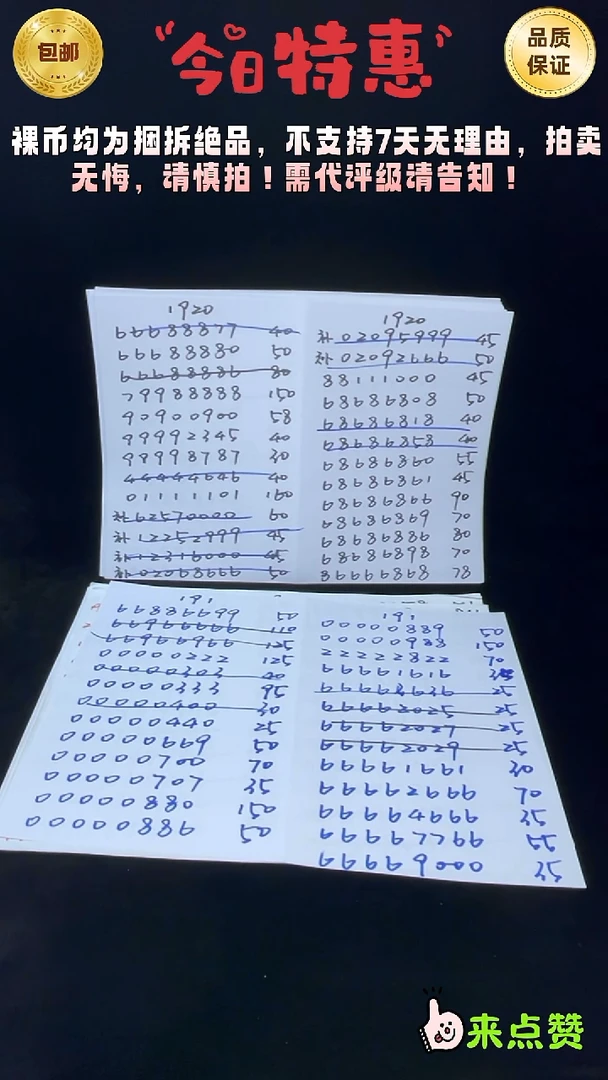 包邮
今日特惠
品质
保证
裸币均为捆拆绝品，不支持7天无理由，拍卖
无悔，请慎拍！需代评级请告知！
1920
66688877 40
66688880 50
66688886 80
79988888 150
90900900 58
99992345 40
98998787 30
44444646 40
01111101 160
补62570000 60
补12252999 45
补12316000 45
补02068666 50
1920
补02095999 45
补02092666 50
88111000 45
68686808 50
68686818 40
68686858 40
68686860 55
68686861 45
68686866 90
68686869 70
68686886 80
68686898 70
86666868 78
191
66886699 50
66966666 110
66966966 125
00000222 125
00000303 40
00000333 95
00000400 30
00000440 25
00000669 50
00000700 70
00000707 35
00000880 150
00000886 50
191
00000889 50
00000988 150
22222822 70
66661616
66668636 25
66662025 25
66662027 25
66662029 25
66661661 30
66662666 70
66664666 35
66667766 55
66669000 35
来点赞